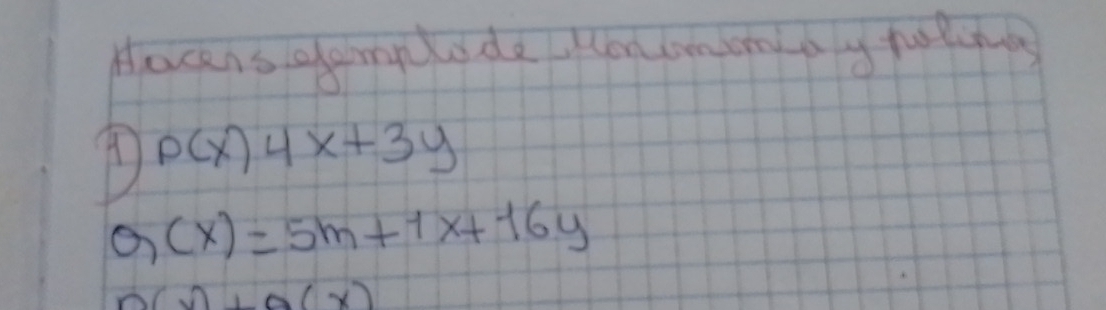 Hacer 5 ejemplo de Monomomio y polino
1) P(x) 4x+3y
Q(x)=5m+1x+16y
P(x)+Q(x)